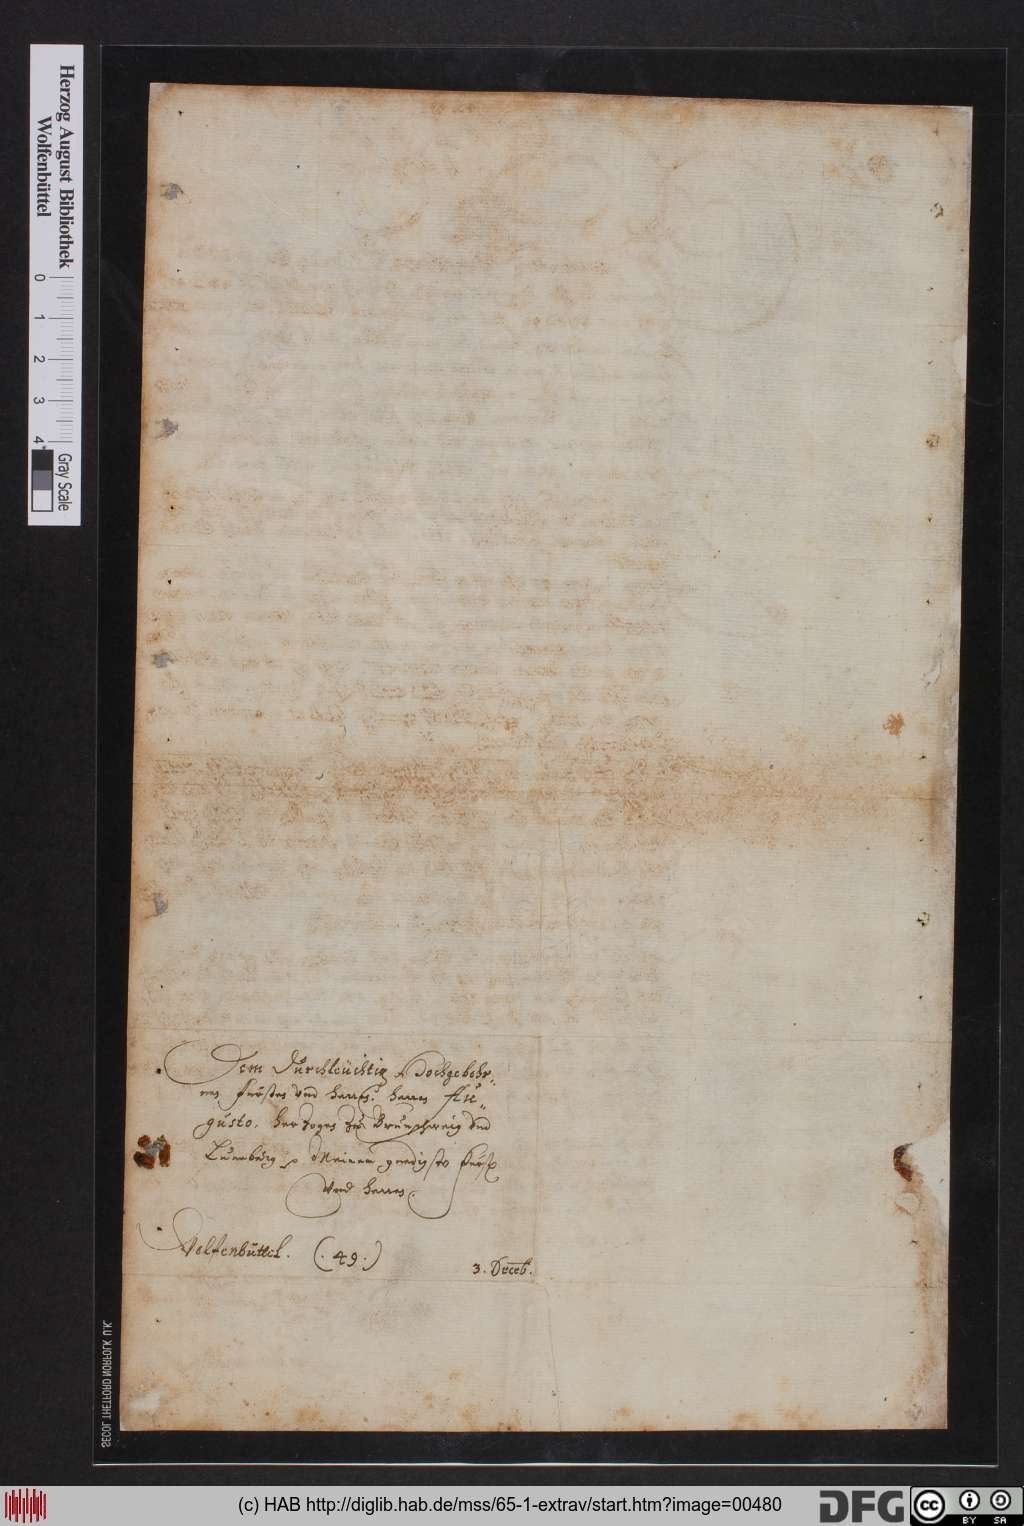 Herzog August Bibliothek
Wolfenbüttel
0 1 2 3 4
Gray Scale
Dem Durchleüchtig Hochgebohr„
nen Fürsten vnd Herrn. Herrn Au„
gusto. Hertzogen zu Brunschweig vnd
Lunæburg p Meinem gnedigsten Fürst
vnd Herrn.
Wolfenbüttel. (. 49 .)
3. Deceb.
SECOL THETFORD NORFOLK U.K.
(c) HAB http://diglib.hab.de/mss/65-1-extrav/start.htm?image=00480
DFG
cc BY SA